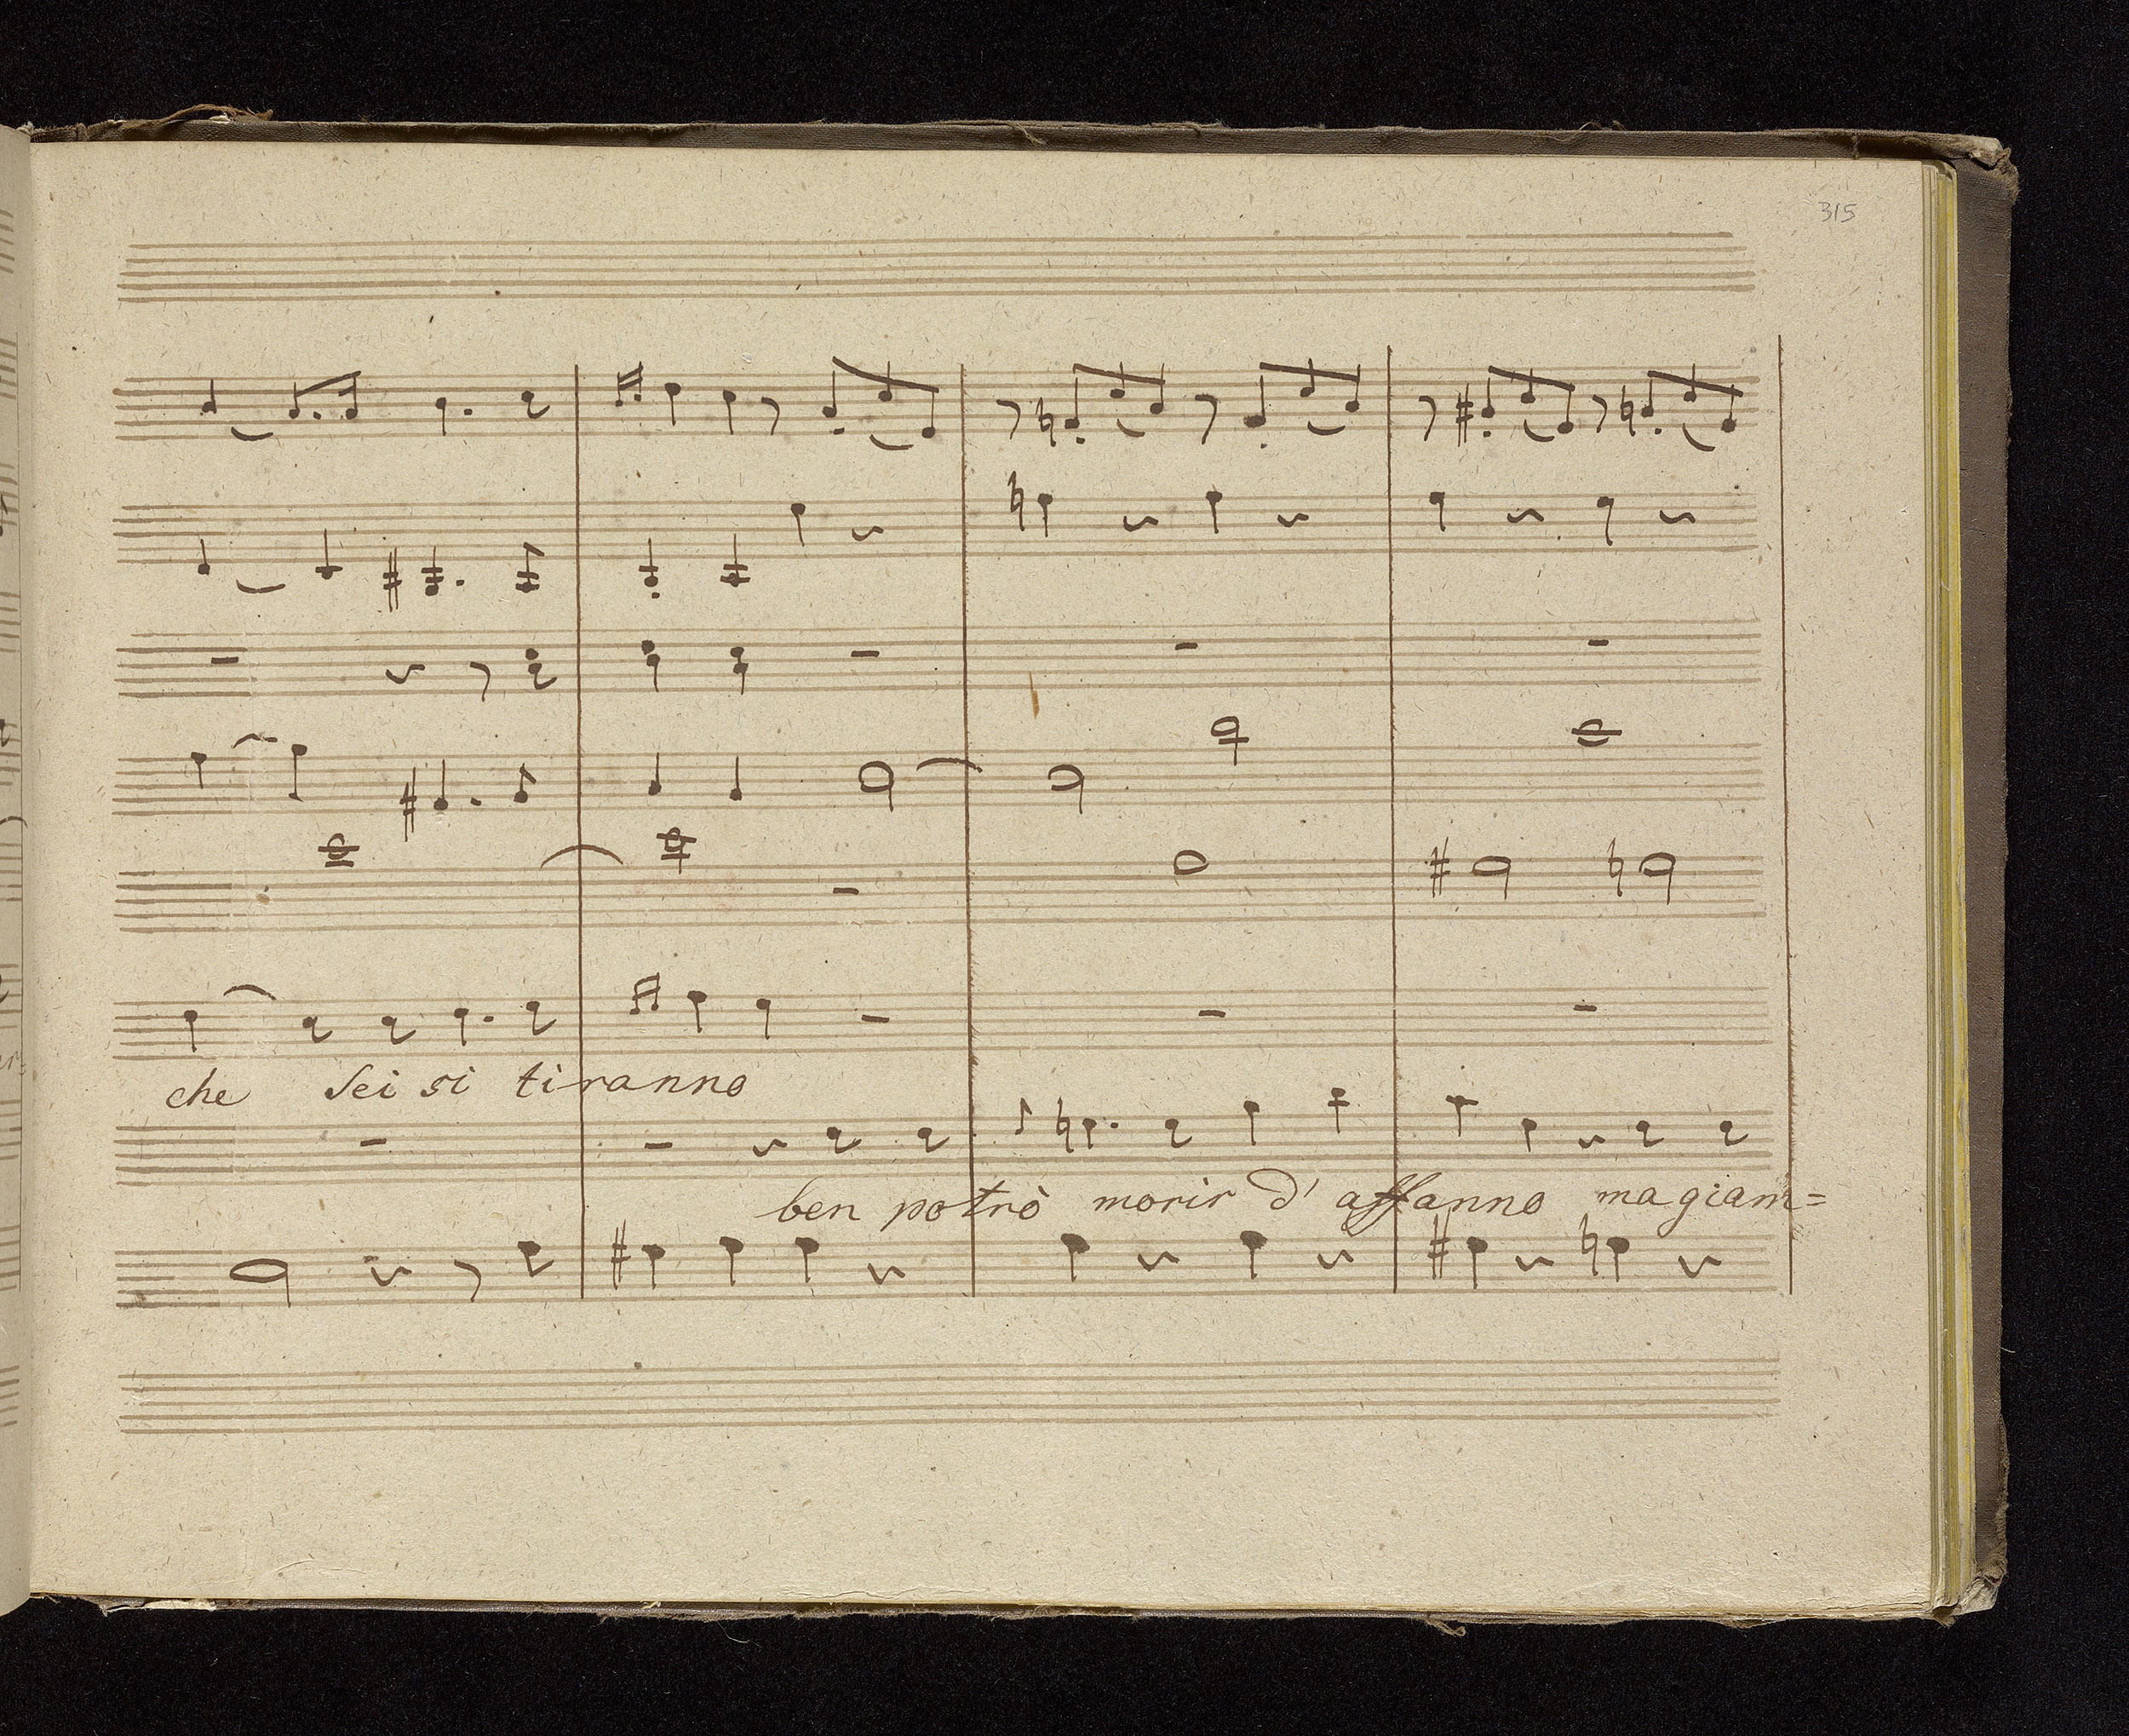 315
che sei si tiranno
ben potrò morir d' affanno ma giam=